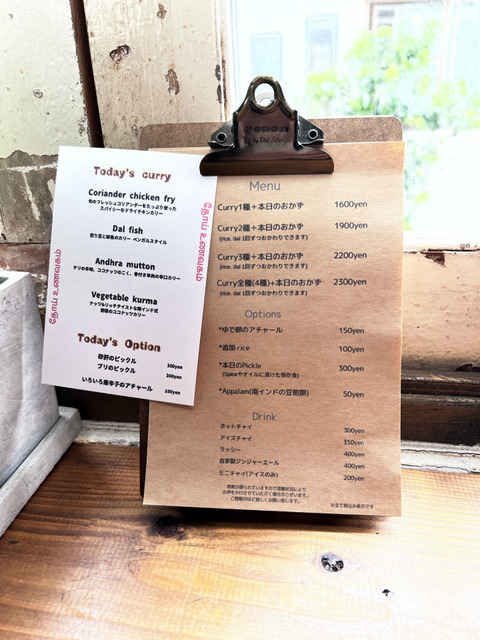 Today's curry
Coriander chicken fry
旬のフレッシュコリアンダーをたっぷり使った
スパイシーなドライチキンカリー
Dal fish
豆と鮮魚のカリー ベンガルスタイル
Andhra mutton
チリの辛味、ココナッツのこく、骨付き羊肉の辛口カリー
Vegetable kurma
ナッツ&リッチテイストな南インド式
野菜のココナッツカリー
Today's Option
砂肝のピックル 300yen
ブリのピックル 300yen
いろいろ唐辛子のアチャール 100yen
Menu
Curry1種+本日のおかず 1600yen
Curry2種+本日のおかず 1900yen
(rice. dal 1回ずつおかわりできます)
Curry3種+本日のおかず 2200yen
(rice. dal 1回ずつおかわりできます)
Curry全種(4種)+本日のおかず 2300yen
(rice. dal 1回ずつおかわりできます)
Options
*ゆで卵のアチャール 150yen
*追加 rice 100yen
*本日のPickle 300yen
(Spiceやオイルに漬けた保存食)
*Appalam(南インドの豆煎餅) 50yen
Drink
ホットチャイ 300yen
アイスチャイ 350yen
ラッシー 400yen
自家製ジンジャーエール 400yen
ミニチャイ(アイスのみ) 200yen
席数が限られていますので混雑状況により
お声をかけさせていただく場合がございます。
ご理解のほど宜しくお願い致します。
※全て税込み表示です